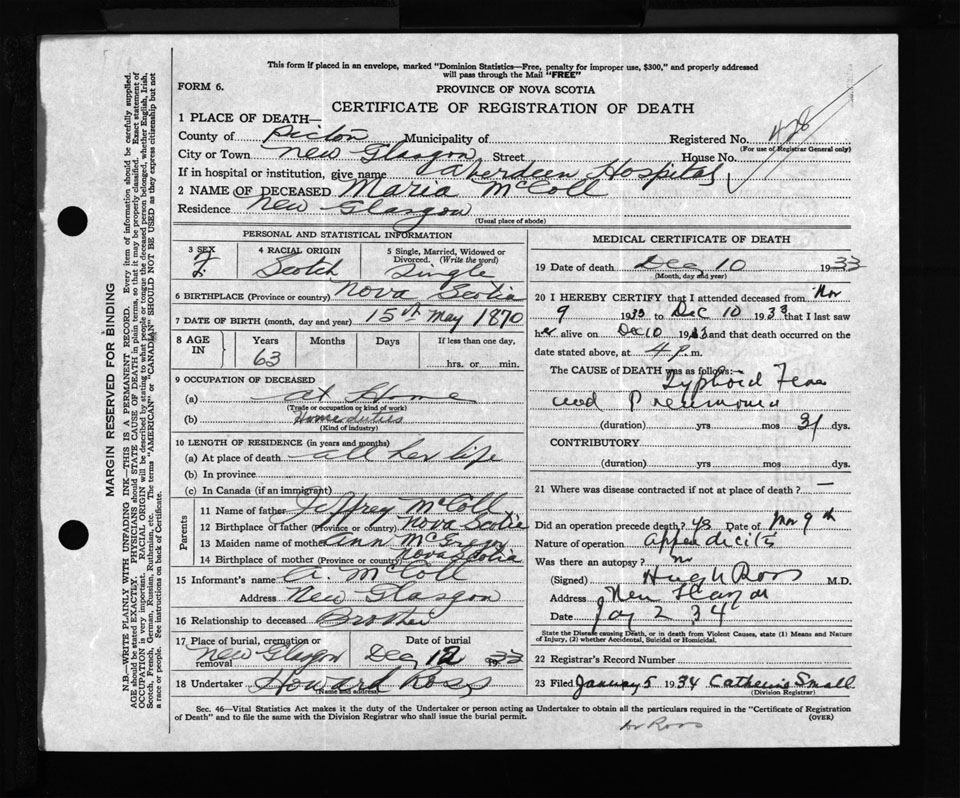 This form if placed in an envelope, marked "Dominion Statistics—Free, penalty for improper use, $300," and properly addressed
will pass through the Mail "FREE"
FORM 6.
PROVINCE OF NOVA SCOTIA
CERTIFICATE OF REGISTRATION OF DEATH
1 PLACE OF DEATH—
County of Pictou Municipality of Registered No. 428
(For use of Registrar General only)
City or Town New Glasgow Street House No.
If in hospital or institution, give name Aberdeen Hospital
2 NAME OF DECEASED Maria McColl
Residence New Glasgow
(Usual place of abode)
PERSONAL AND STATISTICAL INFORMATION
3 SEX F.
4 RACIAL ORIGIN Scotch
5 Single, Married, Widowed or Divorced. (Write the word) Single
6 BIRTHPLACE (Province or country) Nova Scotia
7 DATE OF BIRTH (month, day and year) 15th May 1870
8 AGE IN Years Months Days If less than one day,
63 hrs. or min.
9 OCCUPATION OF DECEASED
(a) at Home
(Trade or occupation or kind of work)
(b) Home duties
(Kind of industry)
10 LENGTH OF RESIDENCE (in years and months)
(a) At place of death all her life
(b) In province
(c) In Canada (if an immigrant)
Parents
11 Name of father Jeffrey McColl
12 Birthplace of father (Province or country) Nova Scotia
13 Maiden name of mother Ann McGregor
14 Birthplace of mother (Province or country) Nova Scotia
15 Informant's name A. McColl
Address New Glasgow
16 Relationship to deceased Brother
17 Place of burial, cremation or removal New Glasgow Date of burial Dec 12 1933
18 Undertaker Howard Ross
(Name and address)
MEDICAL CERTIFICATE OF DEATH
19 Date of death Dec 10 1933
(Month, day and year)
20 I HEREBY CERTIFY that I attended deceased from Nov
9 1933 to Dec 10 1933 that I last saw
her alive on Dec 10 1933 and that death occurred on the
date stated above, at 4 p. m.
The CAUSE OF DEATH was as follows:—
Typhoid Fever
and Pneumonia
(duration) yrs mos 31 dys.
CONTRIBUTORY
(duration) yrs mos dys.
21 Where was disease contracted if not at place of death? —
Did an operation precede death? yes Date of Nov 9th
Nature of operation Appendicitis
Was there an autopsy? No
(Signed) Hugh Ross M.D.
Address New Glasgow
Date Jay 2 34
State the Disease causing Death, or in death from Violent Causes, state (1) Means and Nature
of Injury, (2) whether Accidental, Suicidal or Homicidal.
22 Registrar's Record Number
23 Filed January 5 1934 Catherine Small
(Division Registrar)
Sec. 46—Vital Statistics Act makes it the duty of the Undertaker or person acting as Undertaker to obtain all the particulars required in the "Certificate of Registration
of Death" and to file the same with the Division Registrar who shall issue the burial permit. (OVER)
Dr Ross
MARGIN RESERVED FOR BINDING
N.B.—WRITE PLAINLY WITH UNFADING INK—THIS IS A PERMANENT RECORD. Every item of information should be carefully supplied.
AGE should be stated EXACTLY. PHYSICIANS should STATE CAUSE OF DEATH in plain terms, so that it may be properly classified. Exact statement of
OCCUPATION is very important. RACIAL ORIGIN will be described by stating to what people or tongue the deceased person belonged, whether English, Irish,
Scotch, French, German, Russian, Ruthenian, etc. The terms "AMERICAN" or "CANADIAN" SHOULD NOT BE USED as they express citizenship but not
a race or people. See instructions on back of Certificate.